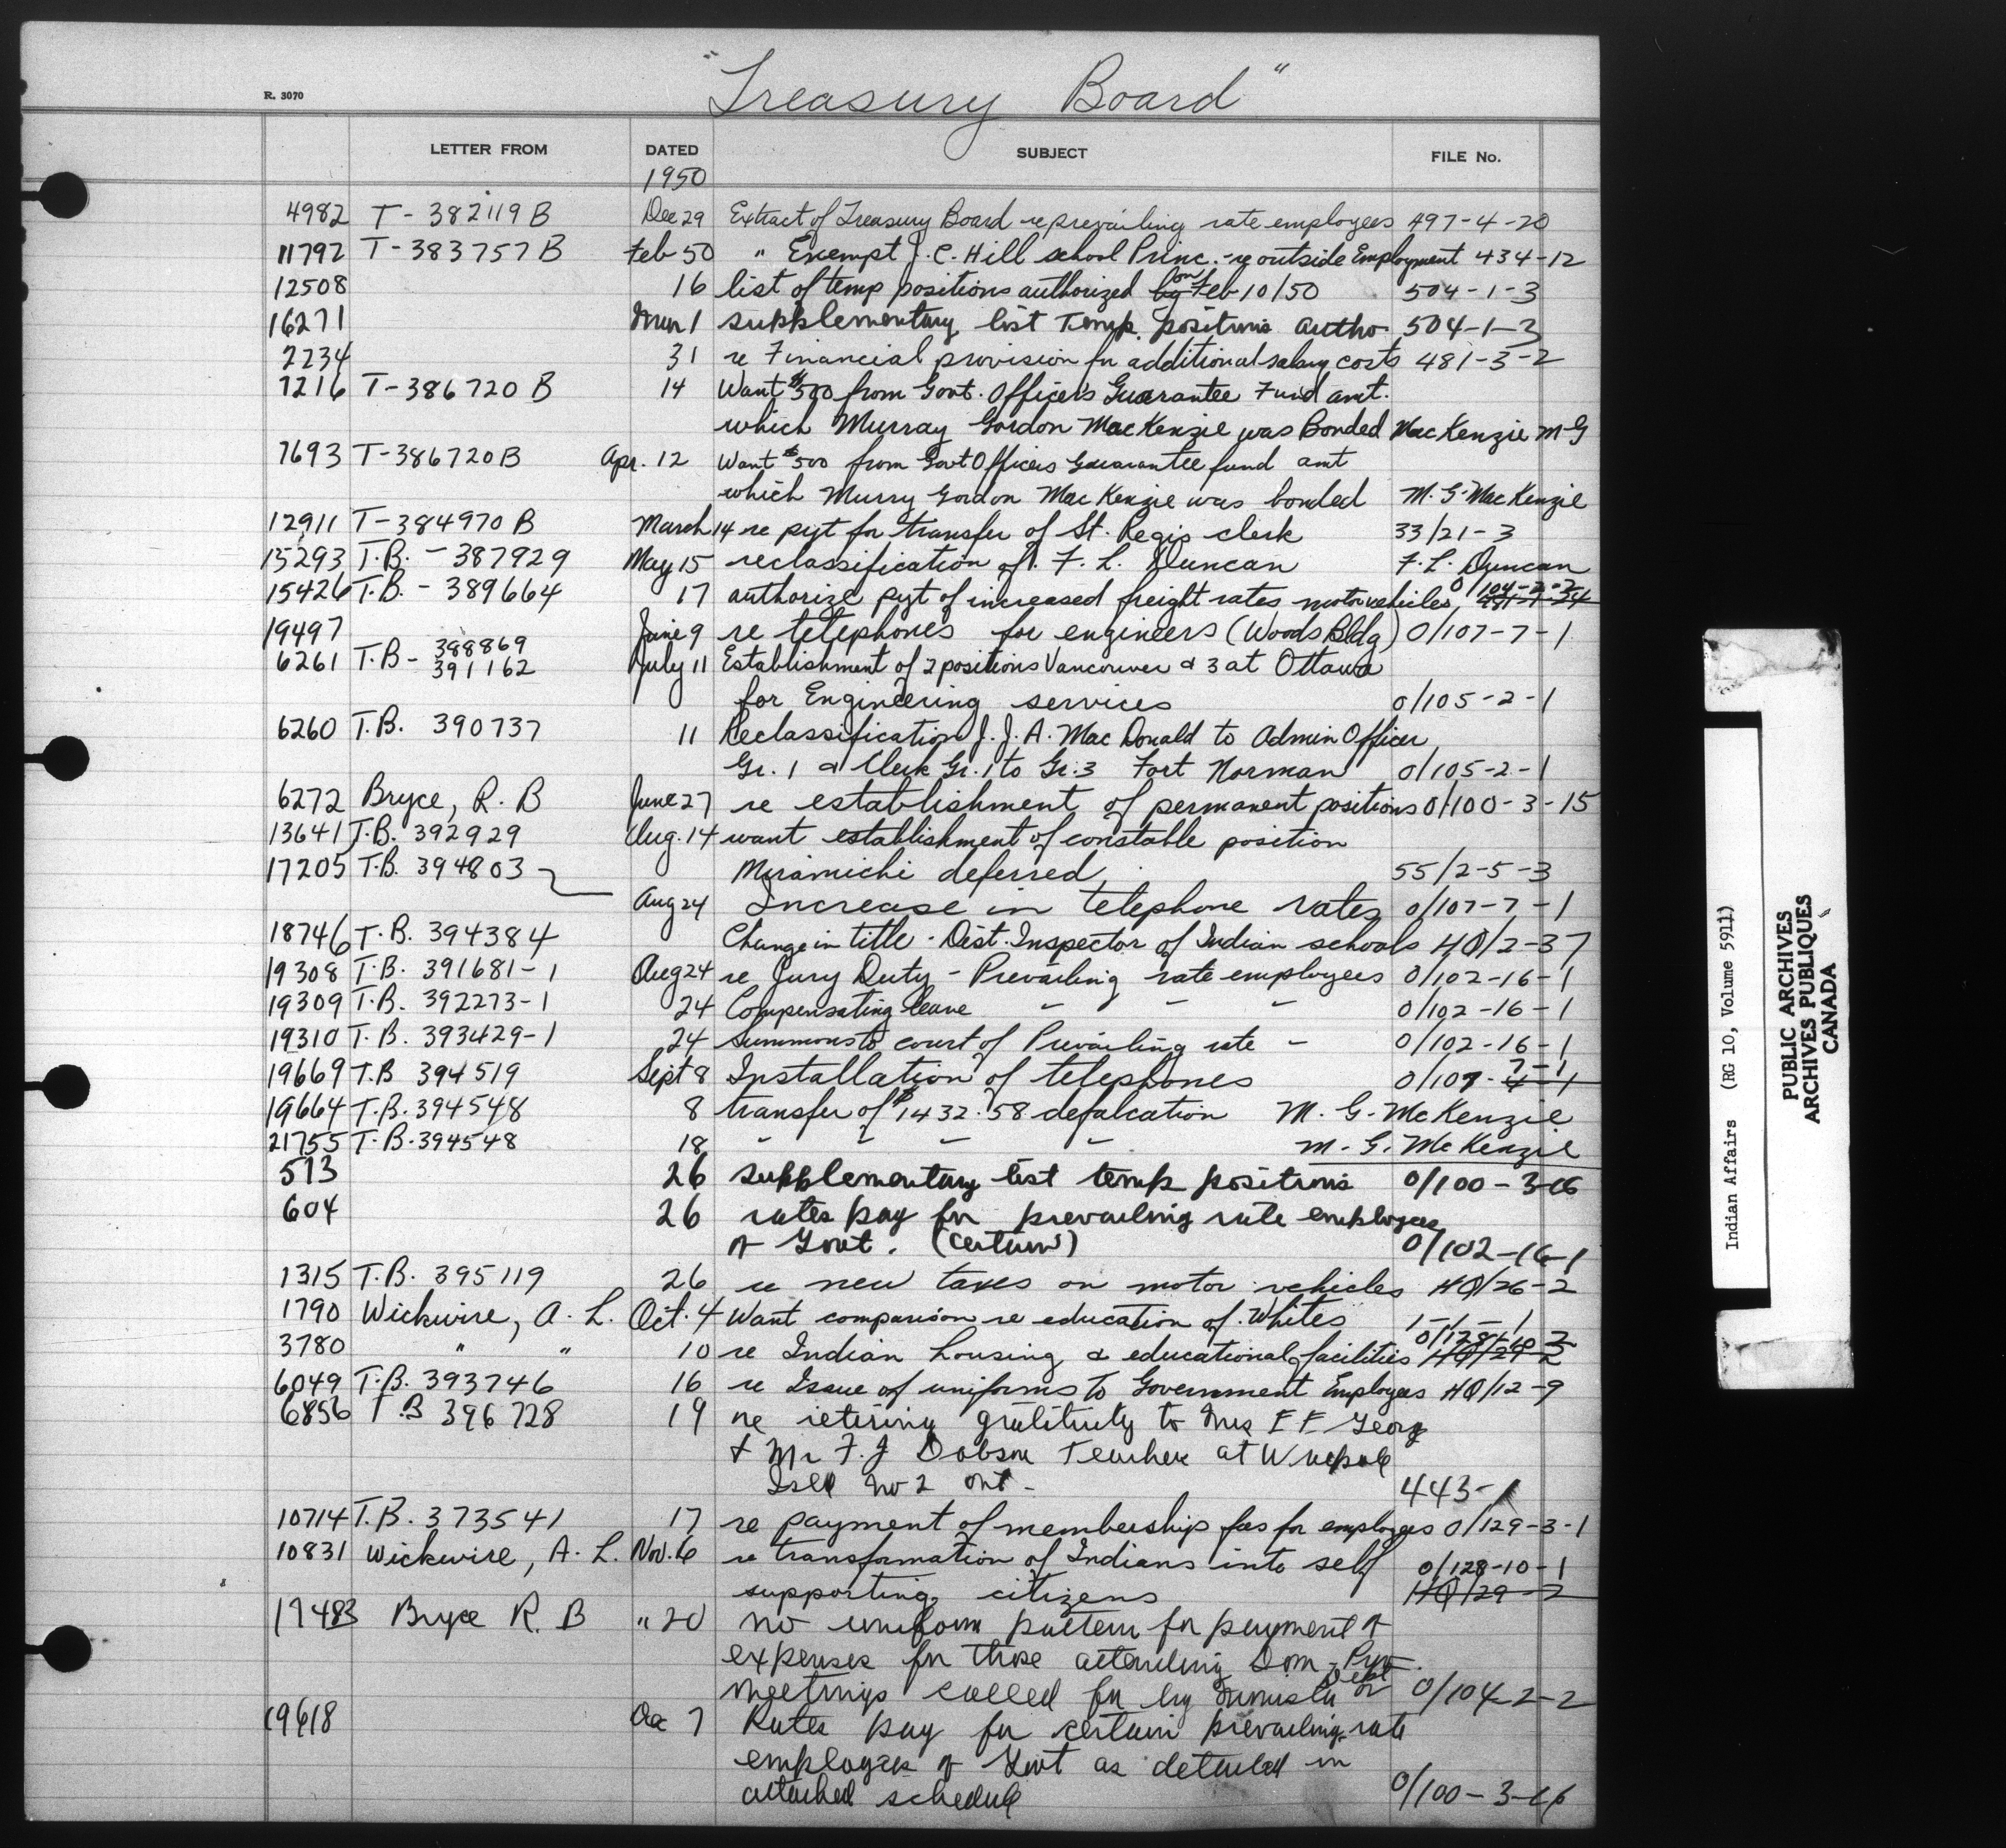 R. 3070
"Treasury Board"
LETTER FROM DATED SUBJECT FILE No.
1950
4982 T - 382119 B Dec 29 Extract of Treasury Board re prevailing rate employees 497-4-20
11792 T - 383757 B Feb 50 " Exempt J. C. Hill school Princ. - re outside Employment 434-12
12508 16 list of temp positions authorized by on Feb 10/50 504-1-3
16271 Mar 1 supplementary list Temp. positions autho 504-1-3
2234 31 re Financial provision for additional salary costs 481-3-2
7216 T - 386720 B 14 Want $500 from Govt. Officer's Guarantee Fund amt.
which Murray Gordon MacKenzie was Bonded MacKenzie M-G
7693 T-386720B Apr. 12 Want $500 from Govt Officers Guarantee fund amt
which Murry Gordon MacKenzie was bonded M. G. MacKenzie
12911 T-384970 B March 14 re pyt for transfer of St. Regis clerk 33/21-3
15293 T.B. - 387929 May 15 reclassification of F. L. Duncan F. L. Duncan
15426 T.B. - 389664 17 authorize pyt of increased freight rates, motor vehicles, 0/104-2-2
19497 June 9 re telephones for engineers (Woods Bldg) 0/107-7-1
6261 T.B - 388869 391162 July 11 Establishment of 2 positions Vancouver & 3 at Ottawa
for Engineering services 0/105-2-1
6260 T.B. 390737 11 Reclassification J. J. A. MacDonald to Admin Officer
Gr. 1 & Clerk Gr. 1 to Gr. 3 Fort Norman 0/105-2-1
6272 Bryce, R. B June 27 re establishment of permanent positions 0/100-3-15
13641 T.B. 392929 Aug. 14 want establishment of constable position
17205 T.B. 394803 Miramichi deferred 55/2-5-3
Aug 24 Increase in telephone rates 0/107-7-1
18746 T.B. 394384 Change in title - Dist. Inspector of Indian schools HQ/2-37
19308 T.B. 391681-1 Aug 24 re Jury Duty - Prevailing rate employees 0/102-16-1
19309 T.B. 392273-1 24 Compensating leave - - - 0/102-16-1
19310 T.B. 393429-1 24 Summons to court of Prevailing rate - 0/102-16-1
19669 T.B 394519 Sept 8 Installation of telephones 0/107-7-1 4-1
19664 T.B. 394548 8 transfer of $1432.58 defalcation M. G. McKenzie
21755 T.B. 394548 18 " " " " M. G. McKenzie
513 26 supplementary list temp positions 0/100-3-16
604 26 rates pay for prevailing rate employees
of Govt. (certain) 0/102-16-1
1315 T.B. 395119 26 re new taxes on motor vehicles HQ/26-2
1790 Wickwire, A. L. Oct. 4 Want comparison re education of Whites 1-1-1
3780 " " 10 re Indian housing & educational facilities HQ/29-2
6049 T.B. 393746 16 re Issue of uniforms to Government Employees HQ/12-9
6856 T.B 396728 19 re retiring gratituty to Mrs E F Georg
& Mr F. J Dobson Teacher at Walpole
Isld No 2 Ont - 443-1
10714 T.B. 373541 17 re payment of membership fees for employees 0/129-3-1
10831 Wickwire, A. L. Nov. 6 re transformation of Indians into self 0/128-10-1
supporting citizens HQ/29-2
17483 Bryce R. B " 20 no uniform pattern for payment of
expenses for those attending Dom - Prov.
meetings called for by Minister or Dept 0/104-2-2
19618 Dec 7 Rates pay for certain prevailing rate
employees of Govt as detailed in
attached schedule 0/100-3-16
Indian Affairs (RG 10, Volume 5911)
PUBLIC ARCHIVES
ARCHIVES PUBLIQUES
CANADA